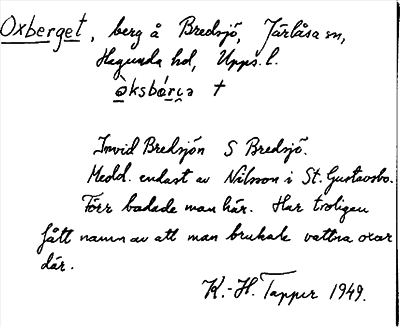 Oxberget, berg å Bredsjö, Järlåsa sn,
Hagunda hd, Upps. l.
Invid Bredsjön S Bredsjö.
Medd. endast av Nilsson i St. Gustavsbo.
Förr badade man här. Har troligen
fått namn av att man brukade vattna oxar
där.
K.-H. Tapper 1949.